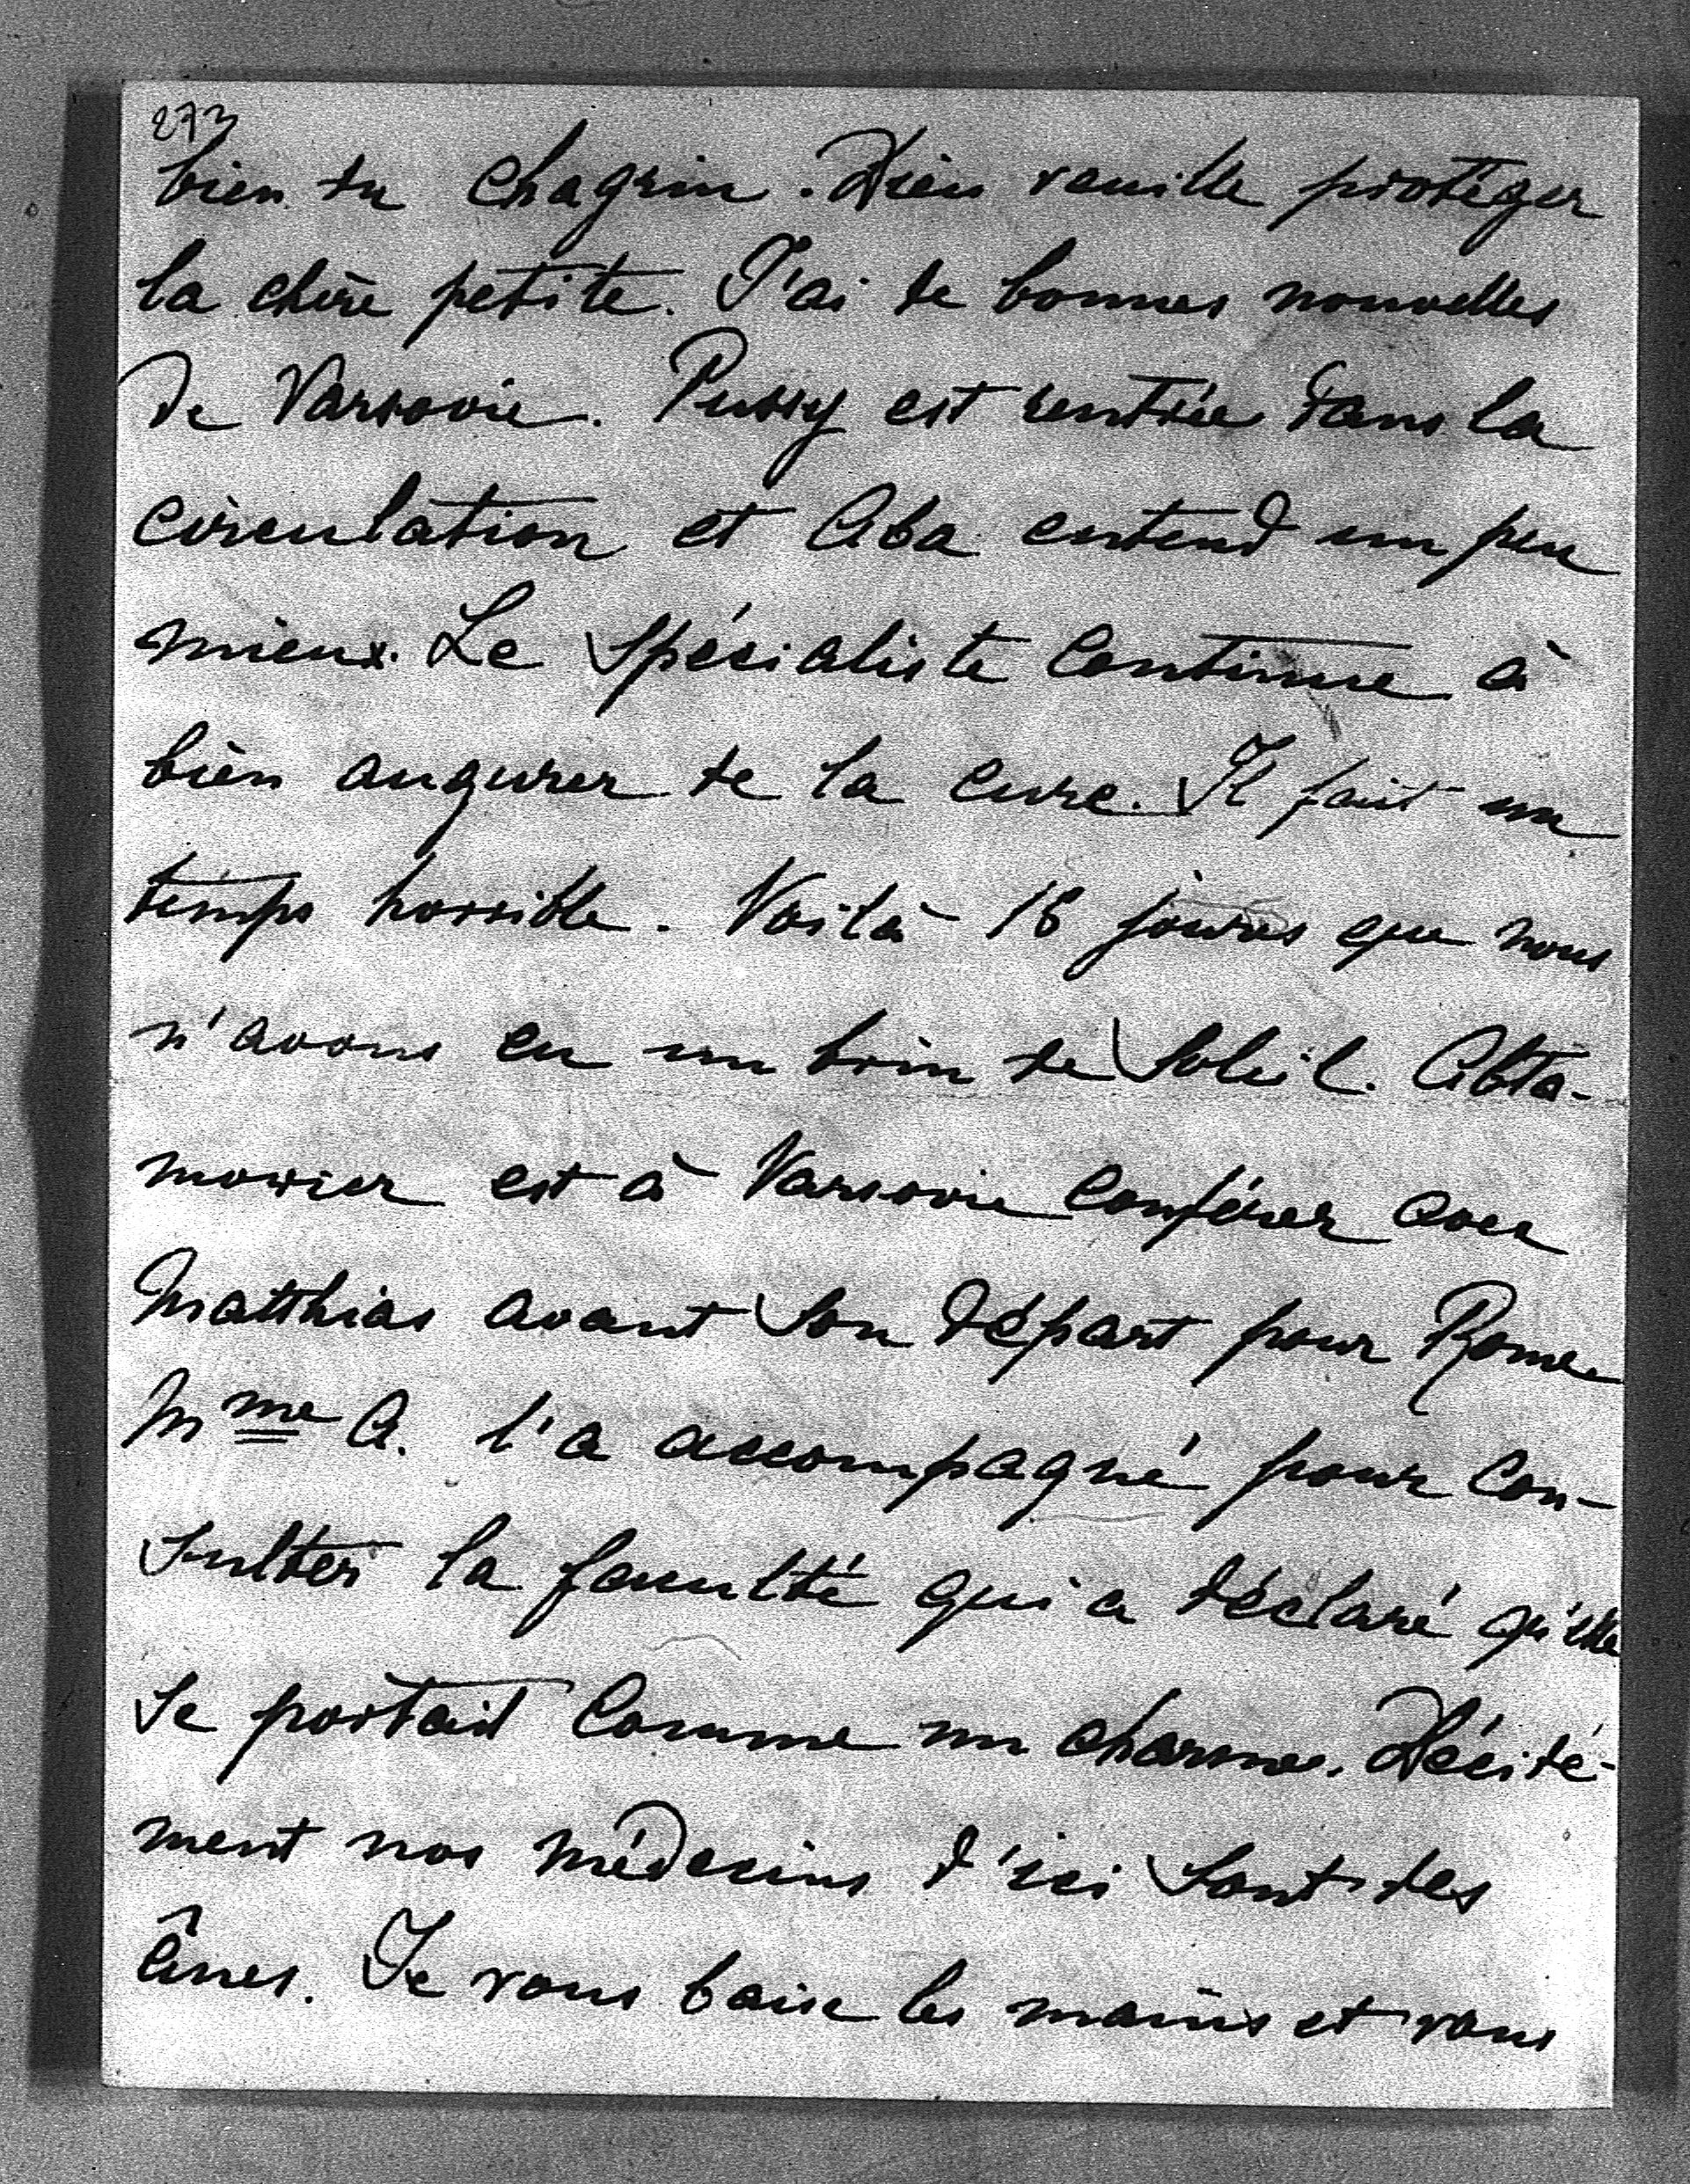 273
bien du chagrin. Dieu veuille protéger
la chère petite. J'ai de bonnes nouvelles
de Varsovie. Pussy est rentrée dans la
circulation et Aba entend un peu
mieux. Le spécialiste continue à
bien augurer de la cure. Il fait un
temps horrible. Voilà 18 jours que nous
n'avons eu un brin de soleil. Abta-
mowicz est à Varsovie conférer avec
Matthias avant son départ pour Rome.
Mme A. l'a accompagné pour con-
sulter la faculté qui a déclaré qu'elle
se portait comme un charme. Décidé-
ment nos médecins d'ici sont des
ânes. Je vous baise les mains et vous